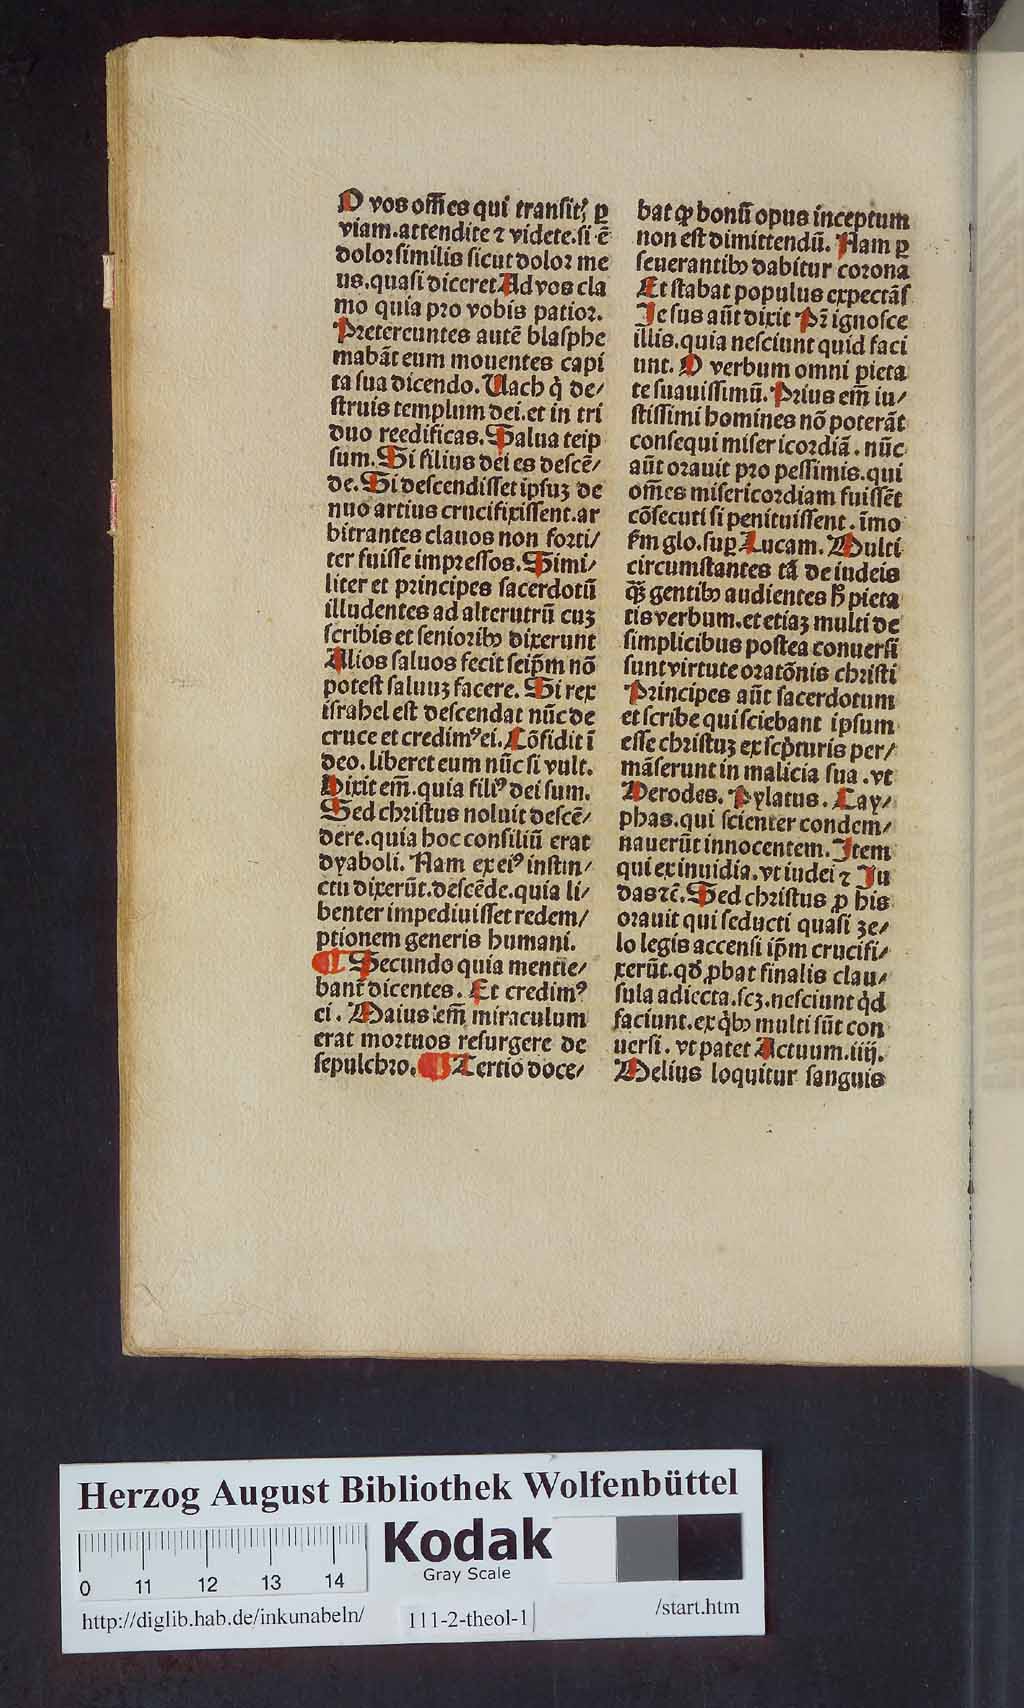 O vos om̄es qui transitꝭ ꝑ
viam.attendite ⁊ videte.si ē
dolor similis sicut dolor me
us.quasi diceret Ad vos cla
mo quia pro vobis patior.
Pretereuntes autē blasphe
mabāt eum mouentes capi
ta sua dicendo. Uach q̇ de/
struis templum dei.et in tri
duo reedificas.Salua teip
sum.Si filius dei es descē/
de.Si descendisset ipsuꝫ de
nuo artius crucifixissent.ar
bitrantes clauos non forti/
ter fuisse impressos.Simi/
liter et principes sacerdotū
illudentes ad alterutrū cuꝫ
scribis et senioribꝰ dixerunt
Alios saluos fecit seip̄m nō
potest saluuꝫ facere. Si rex
israhel est descendat nūc de
cruce et credimꝰ ei. Cōfidit ī
deo. liberet eum nūc si vult.
Dixit em̄.quia filiꝰ dei sum.
Sed christus noluit descē/
dere.quia hoc consiliū erat
dyaboli. Nam ex eiꝰ instin/
ctu dixerūt.descēde.quia li/
benter impediuisset redem/
ptionem generis humani.
¶ Secundo quia mentie/
bant̄ dicentes. Et credimꝰ
ei. Maius em̄ miraculum
erat mortuos resurgere de
sepulchro. ¶ Tertio doce/
bat ꝙ bonū opus inceptum
non est dimittendū. Nam ꝑ
seuerantibꝰ dabitur corona
Et stabat populus expectās
Jesus aūt dixit Pr̄ ignosce
illis.quia nesciunt quid faci
unt. O verbum omni pieta
te suauissimū. Prius em̄ iu/
stissimi homines nō poterāt
consequi misericordiā. nūc
aūt orauit pro pessimis.qui
om̄es misericordiam fuissēt
cōsecuti si penituissent. īmo
km̄ glo.suꝑ Lucam. Multi
circumstantes tā de iudeis
q̄ȝ gentibꝰ audientes h̄ pieta
tis verbum.et etiaꝫ multi de
simplicibus postea conuersi
sunt virtute oratōnis christi
Principes aūt sacerdotum
et scribe qui sciebant ipsum
esse christuꝫ ex scp̄turis per/
māserunt in malicia sua .vt
Herodes. Pylatus. Cay/
phas.qui scienter condem/
nauerūt innocentem. Item
qui ex inuidia.vt iudei ⁊ Ju
das ⁊c̄. Sed christus ꝓ his
orauit qui seducti quasi ze/
lo legis accensi ip̄m crucifi/
xerūt.qđ ꝓbat finalis clau/
sula adiecta.scꝫ.nesciunt q̇d
faciunt.ex q̇bꝰ multi sūt con
uersi. vt patet Actuum.iiij.
Melius loquitur sanguis
Herzog August Bibliothek Wolfenbüttel
Kodak
Gray Scale
0 11 12 13 14
http://diglib.hab.de/inkunabeln/ 111-2-theol-1 /start.htm